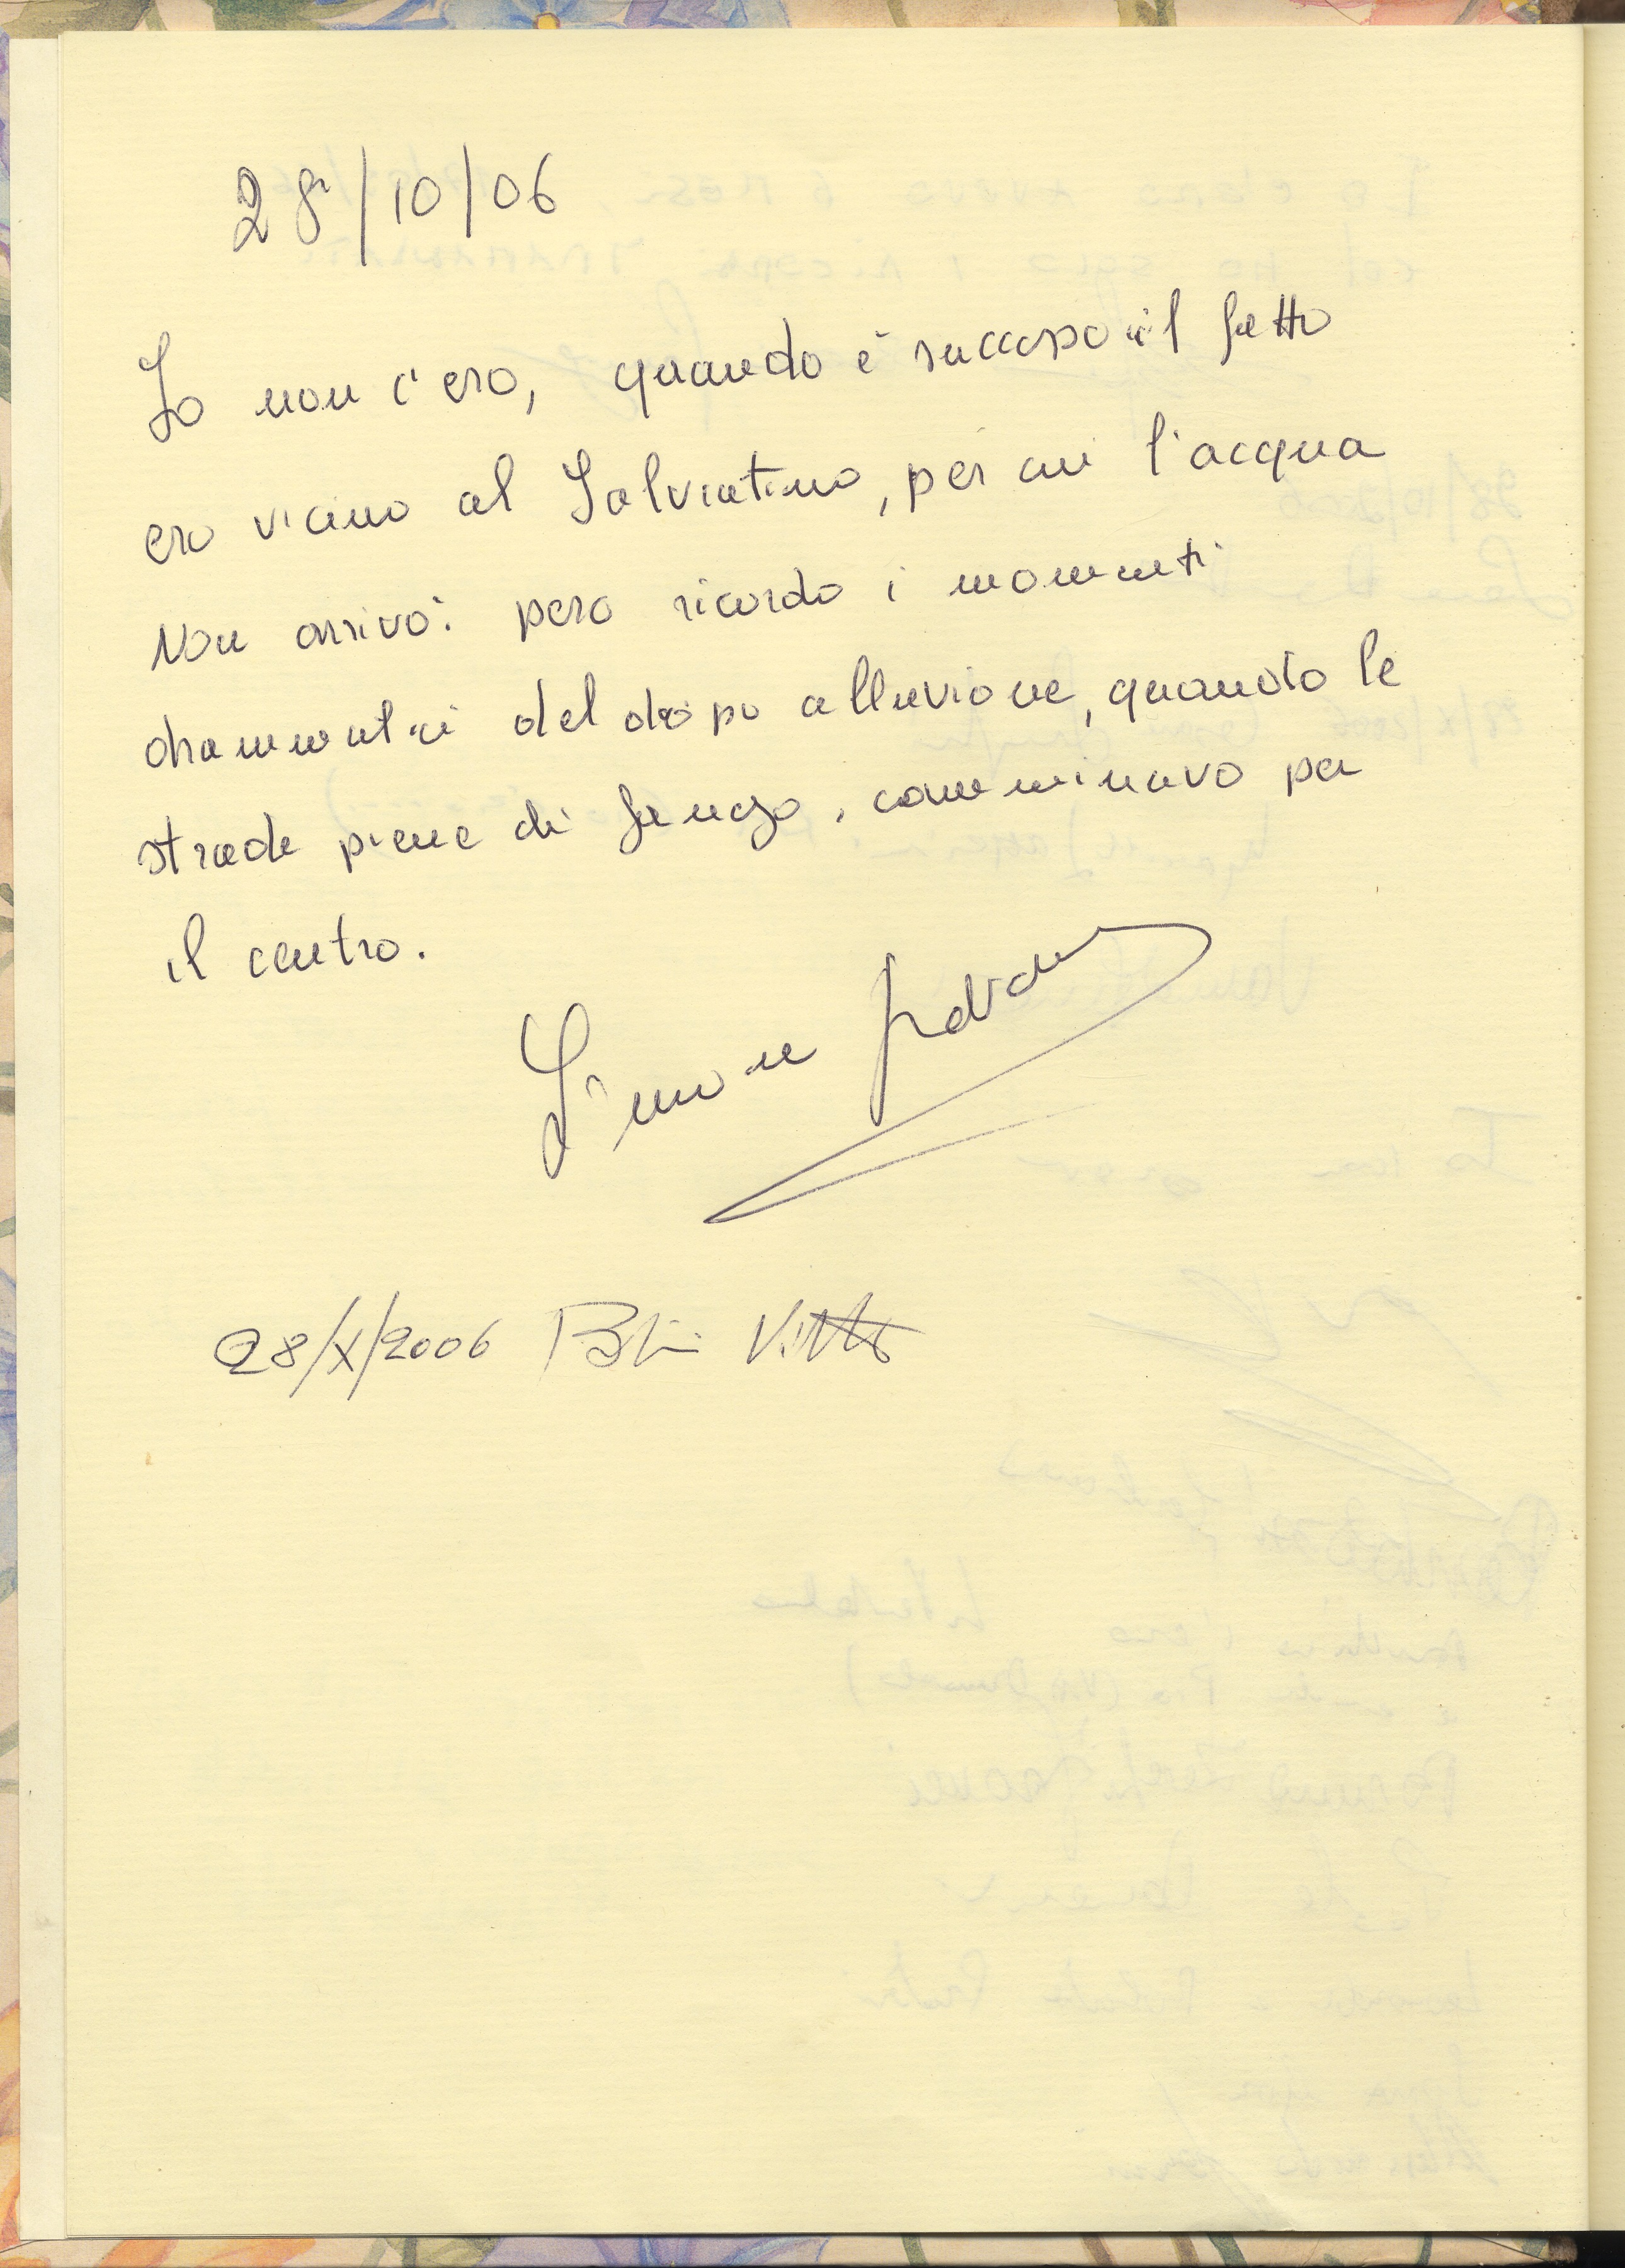 28/10/06
Io non c'ero, quando è successo il fatto
ero vicino al Salviatino, per cui l'acqua
non arrivò: però ricordo i momenti
drammatici del dopo alluvione, quando le
strade piene di fango, camminavo per
il centro.
Simone
28/X/2006